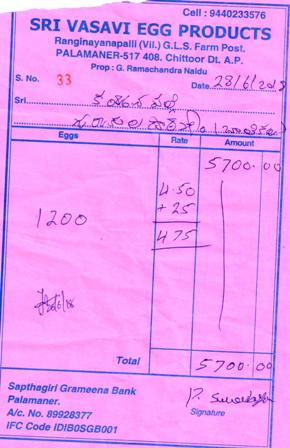 Cell : 9440233576
SRI VASAVI EGG PRODUCTS
Ranginayanapalli (Vil.) G.L.S. Farm Post.
PALAMANER-517 408. Chittoor Dt. A.P.
Prop : G. Ramachandra Naidu
S. No. 33 Date 28/6/2018
Sri
Eggs Rate Amount
5700.00
4.50
+ 25
1200 475
Total 5700.00
Sapthagiri Grameena Bank
Palamaner.
A/c. No. 89928377
IFC Code IDIB0SGB001
Signature